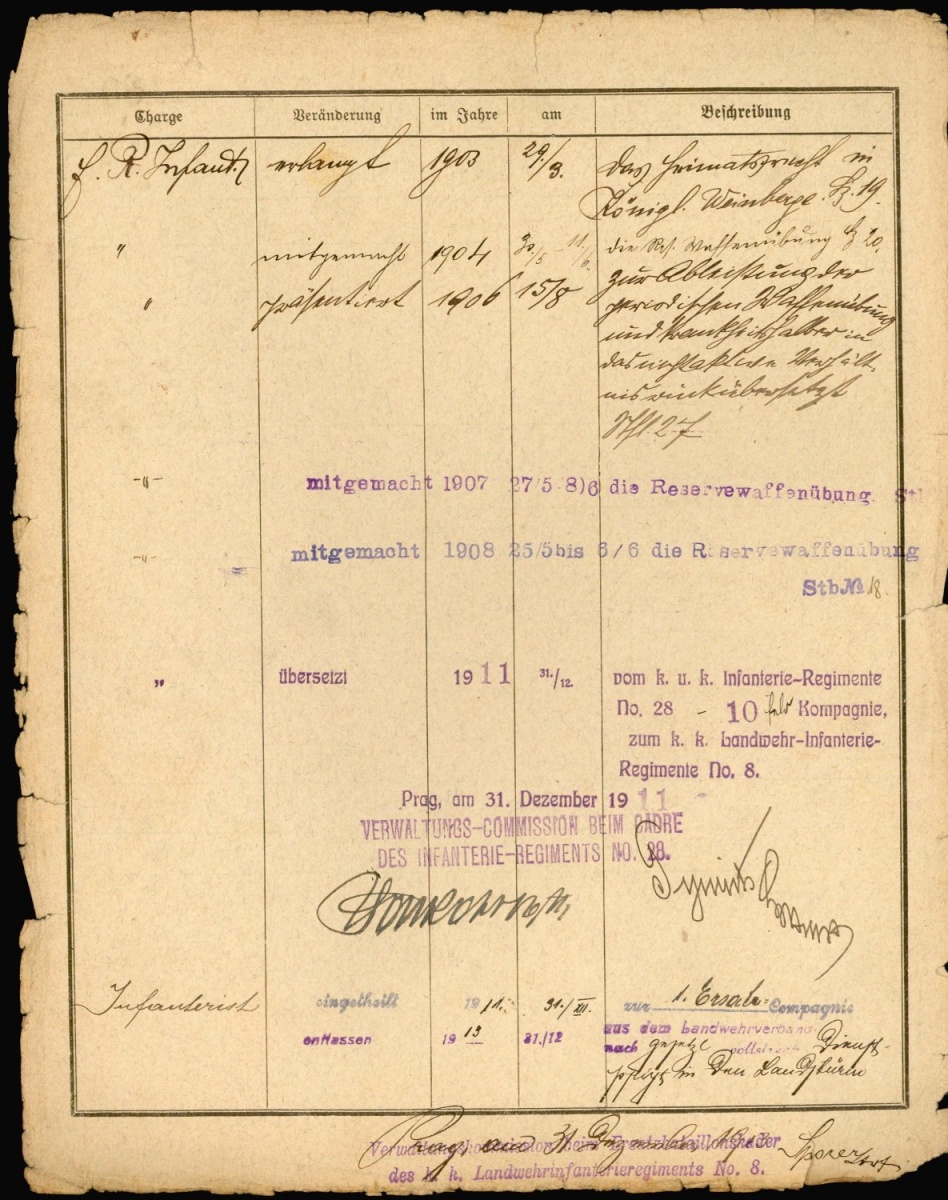 Charge Veränderung im Jahre am Beschreibung
Infant. erlangt 1903 29./3. das Heimatsrecht in
Königl. Weinberge. 19.
" mitgemacht 1904 30/5 11/6. die Res. Waffenübung 20.
" präsentiert 1906 15/8 zur Ableistung der
periodischen Waffenübung
und krankheitshalber in
das nichtaktive Verhält-
nis rückübersetzt
27
-"- mitgemacht 1907 27/5 8)6 die Reservewaffenübung. Stb
-"- mitgemacht 1908 25/5 bis 6/6 die Reservewaffenübung
Stb№ 18
" übersetzt 1911 31./12. vom k. u. k. Infanterie-Regimente
No. 28 - 10 feld Kompagnie,
zum k. k. Landwehr-Infanterie-
Regimente No. 8.
Prag, am 31. Dezember 1911
VERWALTUNGS-COMMISSION BEIM CADRE
DES INFANTERIE-REGIMENTS NO. 28.
Infanterist eingetheilt 1911. 31./XII. zur 1. Ersatz-Compagnie
entlassen 1913 31./12 aus dem Landwehrverband
nach gesetzl vollstreckt Dienst-
pflicht in den Landsturm
Prag, am 31 Dezember 1913
Verwaltungskommission beim Ersatzbataillonskader
des k. k. Landwehrinfanterieregiments No. 8.